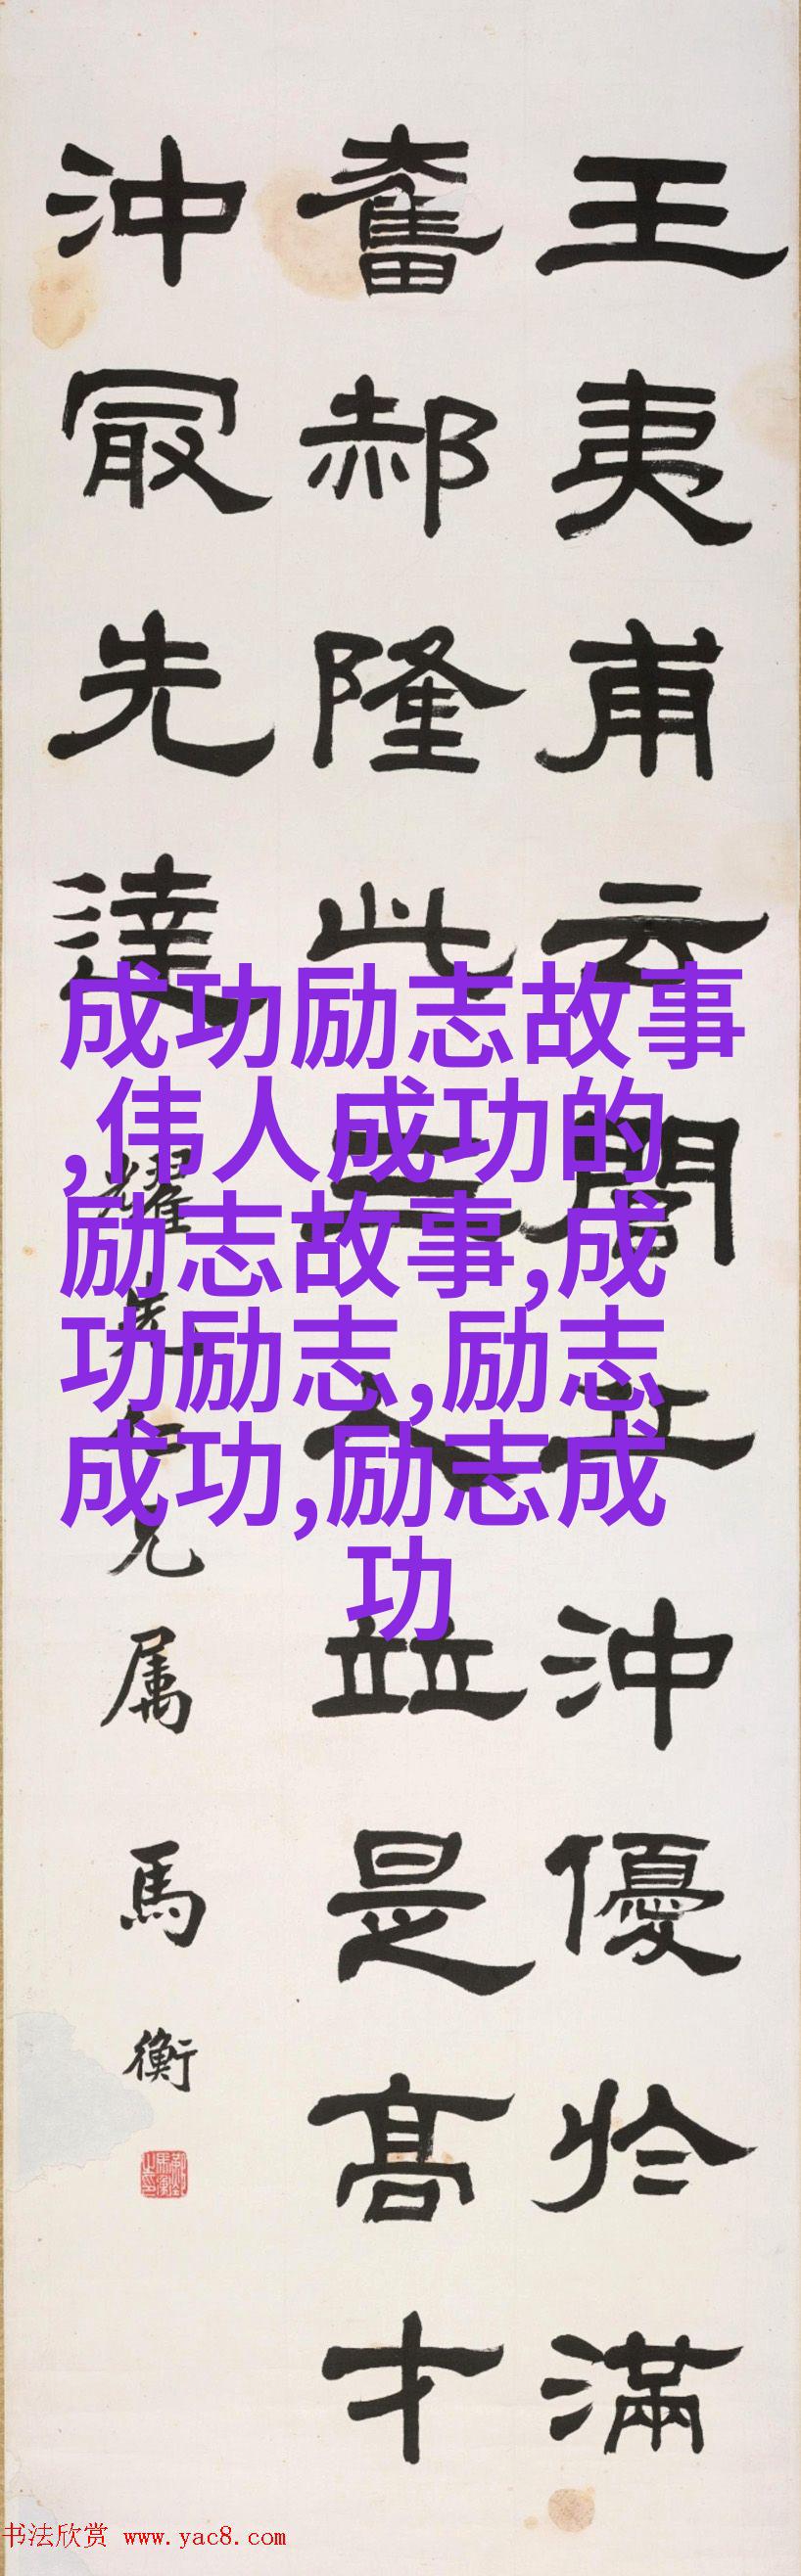 王夷甫云閭丘沖優於滿
奮郝隆此三人並是高才
沖冣先達
耀先仁兄属
馬衡
成功励志故事
,伟人成功的
励志故事,成
功励志,励志
成功,励志成
功
书法欣赏 www.yac8.com